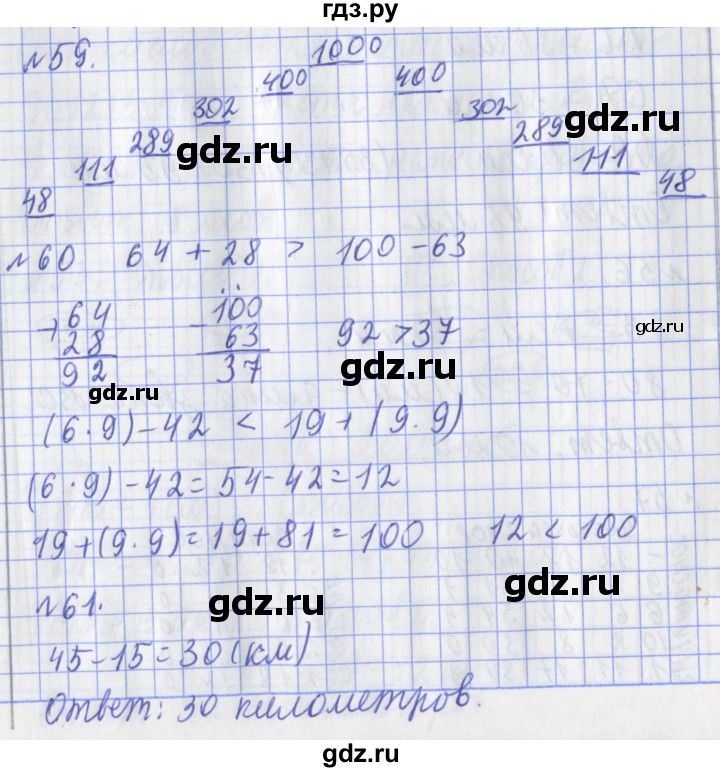 гдз.ру
№59.
1000
400 400
302 302
289 289
gdz.ru gdz.ru
111 111
48 48
№60 64 + 28 > 100 - 63
+ 64 - 100
28 63 92 > 37 gdz.ru
92 37
gdz.ru gdz.ru
(6 · 9) - 42 < 19 + (9 · 9)
(6 · 9) - 42 = 54 - 42 = 12
19 + (9 · 9) = 19 + 81 = 100 12 < 100
№61. gdz.ru gdz.ru
45 - 15 = 30 (км)
Ответ: 30 километров.
gdz.ru
gdz.ru